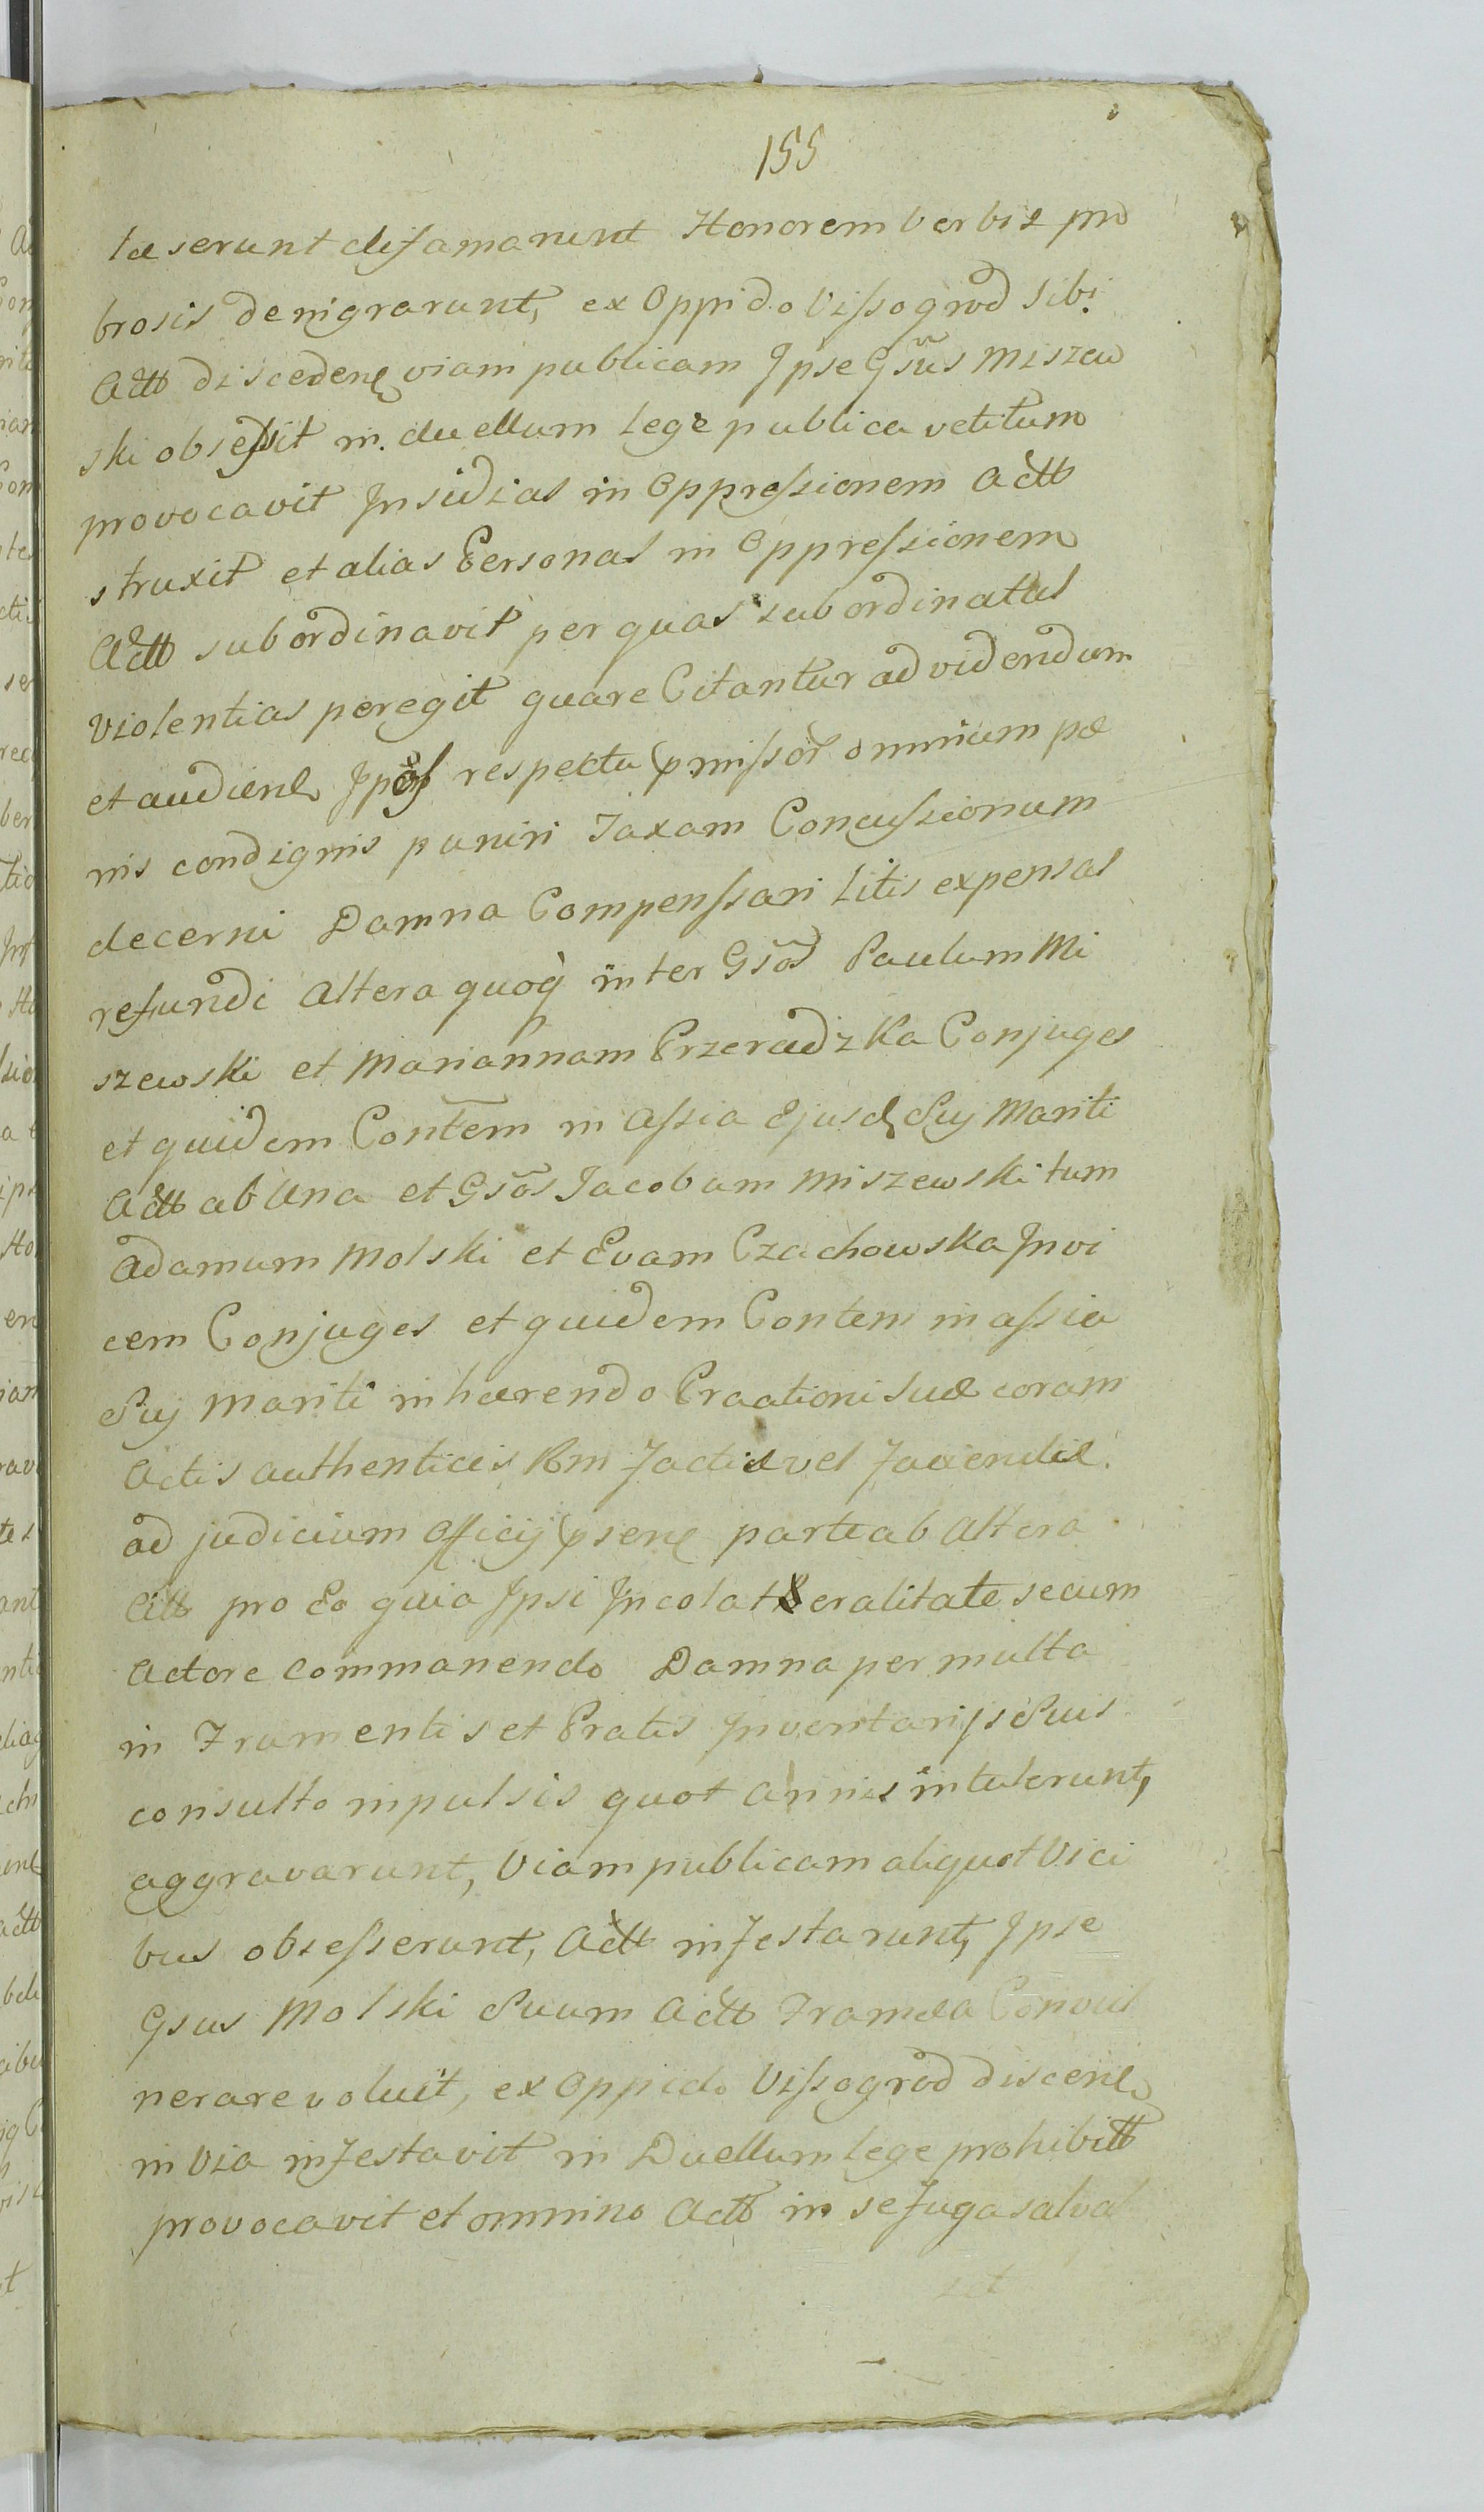 155
læserunt difamarunt Honorem verbis pro
brosis denigrarunt, ex Oppido Vissogrod sibi
Actt discedenе viam publicam Ipse Gsus Miszew
ski obsessit in duellum Lege publica vetitum
provocavit Insidias in Oppressionem Actt
struxit et alias Personas in Oppressionem
Actt subordinavit per quas subordinatas
Violentias peregit quare Citantur ad videndum
et audiend Ipos respectu pmissor omnium pæ
nis condignis puniri Taxam Concussionum
decerni Damna Compenssari Litis expensas
refundi Altera quoq inter Gsos Paulum Mi
szewski et Mariannam Przeradzka Conjuges
et quidem Contem in assia Ejusd Suj Mariti
Actt ab Una et Gsos Jacobum Miszewski tum
Adamum Molski et Evam Czachowska Invi
cem Conjuges et quidem Contem in assia
Suj Mariti inhærendo Praationi Suæ coram
Actis authenticis Rni Factis vel Faciendis
ad judicium Officij psene parte ab Altera
Citt pro Eo quia Ipsi Incolateralitate secum
Actore Commanendo Damna per multa
in Frumentis et Pratis Inventarijs Suis
consulto inpulsis quot annis intulerunt,
aggravarunt, Viam publicam aliquot Vici
bus obsesserunt, Actt infestarunt, Ipse
Gsus Molski Suum Actt Framea Convul
nerare voluit, ex Oppido Vissogrod discene
in Via infestavit in Duellum lege prohibitt
provocavit et omnino Actt in se fuga salva